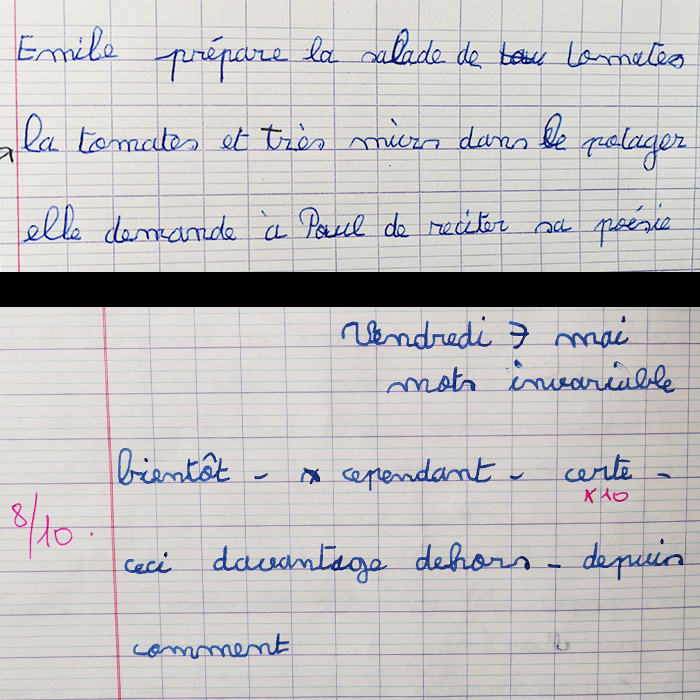 Emile prépare la salade de tomates
la tomates et très micrs dans le potager
elle demande à Paul de reciter sa poésie
Vendredi 7 mai
mots invariable
bientôt - cependant - certe -
x10
8/10.
ceci davantage dehors - depuis
comment